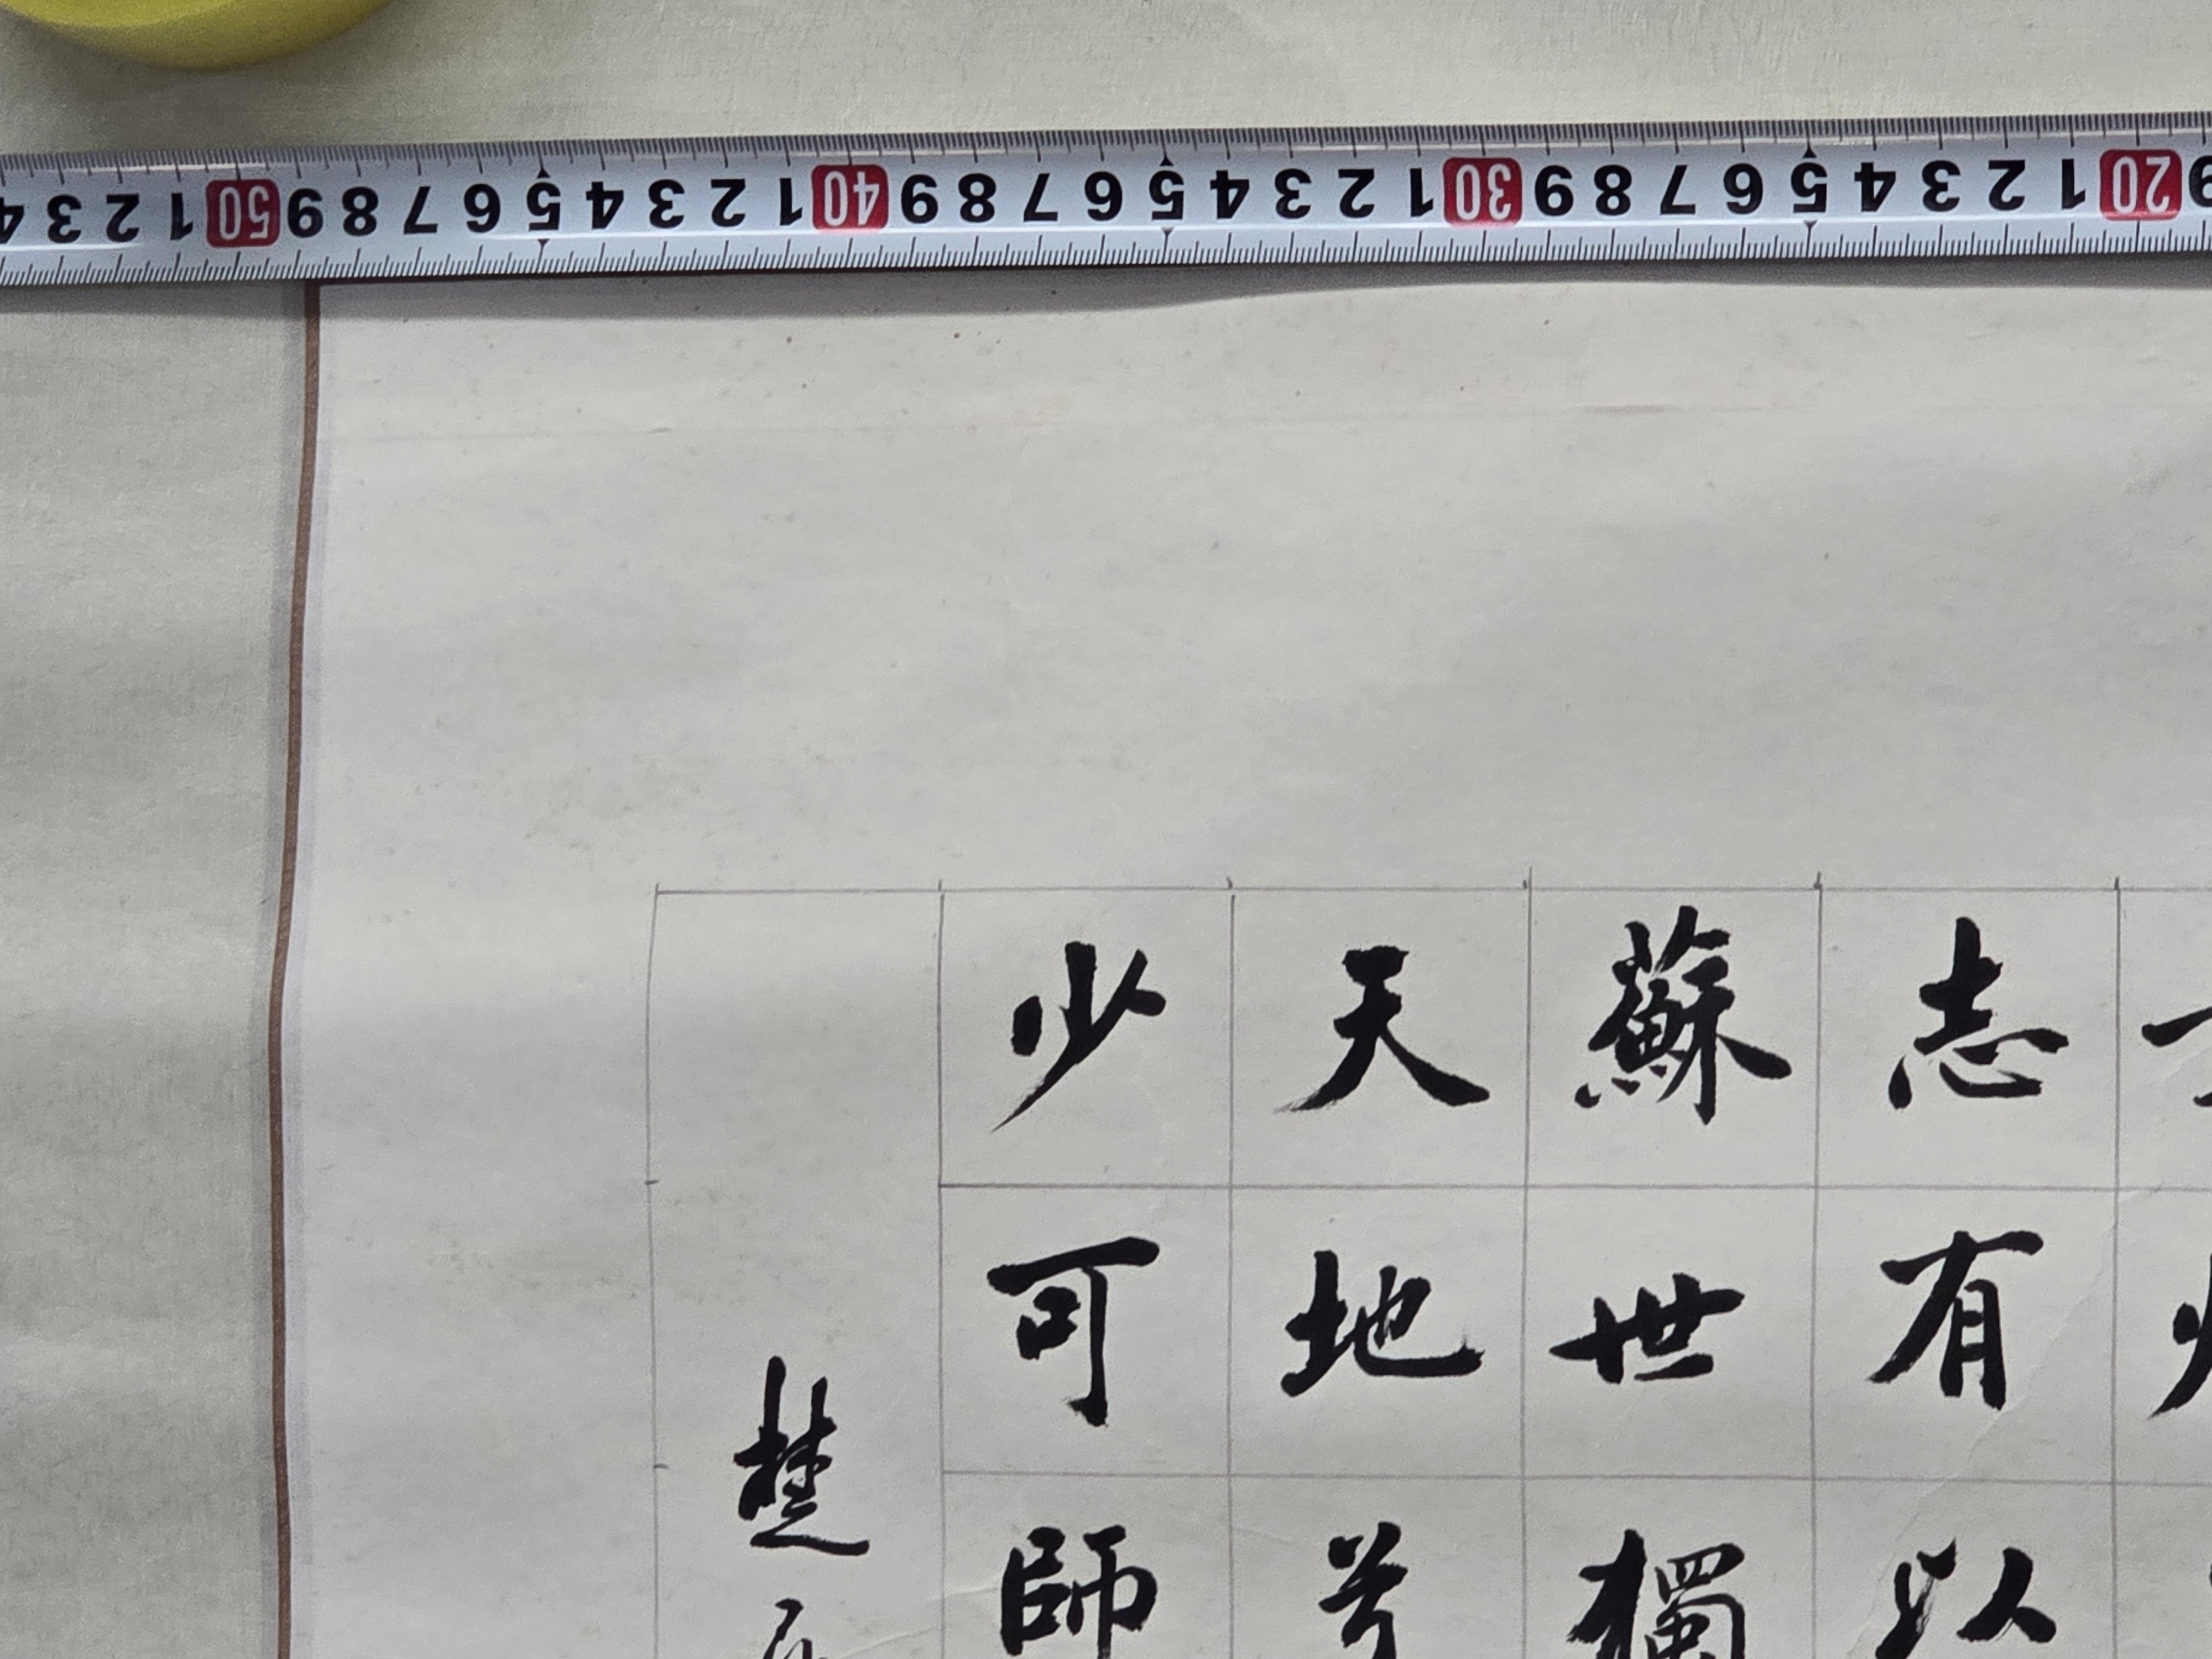 20 1 2 3 4 5 6 7 8 9 30 1 2 3 4 5 6 7 8 9 40 1 2 3 4 5 6 7 8 9 50 1 2 3 4
志有以
蘇世獨
天地兮
少可師
楚